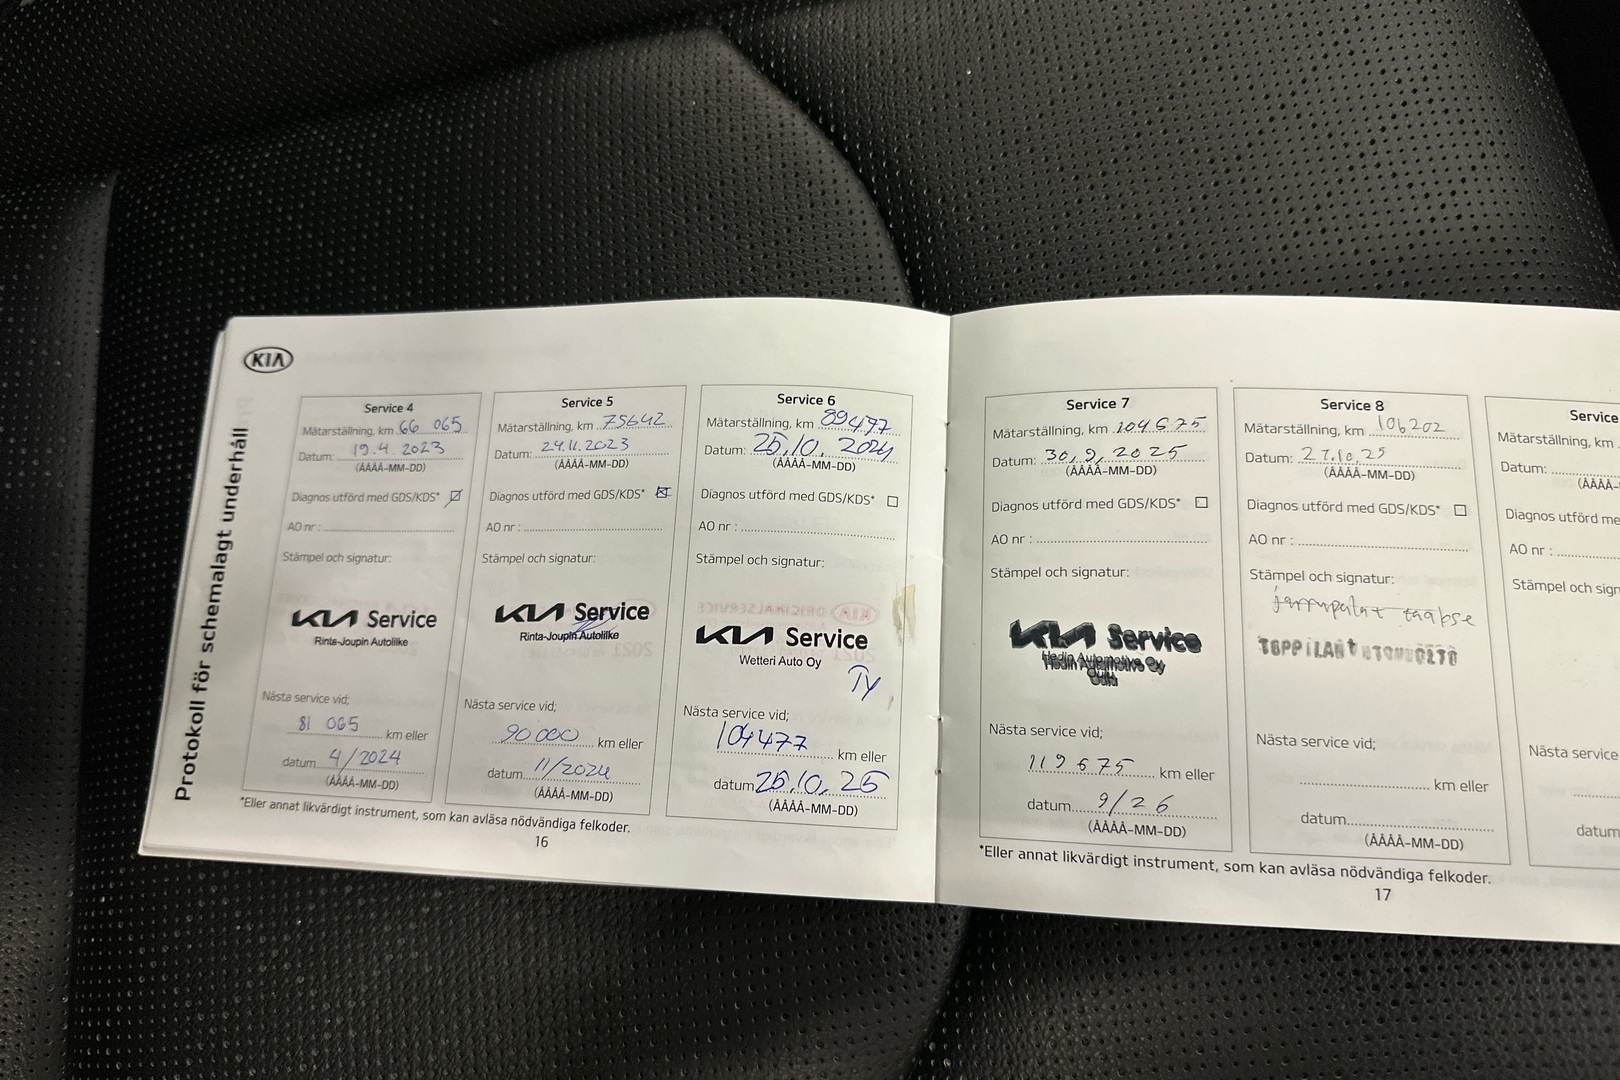 Protokoll för schemalagt underhåll
KIA
Service 4
Mätarställning, km 66 065
Datum: 19.4.2023
(ÅÅÅÅ-MM-DD)
Diagnos utförd med GDS/KDS*
AO nr :
Stämpel och signatur:
KIA Service
Rinta-Joupin Autoliike
Nästa service vid;
81 065 km eller
datum 4/2024
(ÅÅÅÅ-MM-DD)
Service 5
Mätarställning, km 75642
Datum: 24.11.2023
(ÅÅÅÅ-MM-DD)
Diagnos utförd med GDS/KDS*
AO nr :
Stämpel och signatur:
KIA Service
Rinta-Joupin Autoliike
Nästa service vid;
90000 km eller
datum 11/2024
(ÅÅÅÅ-MM-DD)
Service 6
Mätarställning, km 89477
Datum: 25.10.2024
(ÅÅÅÅ-MM-DD)
Diagnos utförd med GDS/KDS*
AO nr :
Stämpel och signatur:
KIA Service
Wetteri Auto Oy
TY
Nästa service vid;
104477 km eller
datum 25.10.25
(ÅÅÅÅ-MM-DD)
*Eller annat likvärdigt instrument, som kan avläsa nödvändiga felkoder.
16
Service 7
Mätarställning, km 104675
Datum: 30.9.2025
(ÅÅÅÅ-MM-DD)
Diagnos utförd med GDS/KDS*
AO nr :
Stämpel och signatur:
KIA Service
Hedin Automotive Oy
Oulu
Nästa service vid;
119675 km eller
datum 9/26
(ÅÅÅÅ-MM-DD)
Service 8
Mätarställning, km 106202
Datum: 27.10.25
(ÅÅÅÅ-MM-DD)
Diagnos utförd med GDS/KDS*
AO nr :
Stämpel och signatur:
jarrupalat taakse
Nästa service vid;
km eller
datum
(ÅÅÅÅ-MM-DD)
*Eller annat likvärdigt instrument, som kan avläsa nödvändiga felkoder.
17
Service
Mätarställning, km
Datum:
(ÅÅÅÅ-
Diagnos utförd me
AO nr :
Stämpel och sign
Nästa service
datum